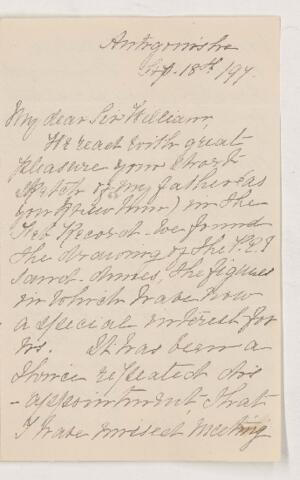 Antigonishe
Sep. 18th /97.
My dear Sir William,
We read with great
pleasure your short
sketch of my father (as
you knew him) in the
Record. We found
the drawing of the P.E.I
sand-dunes, the figures
in which have now
a special interest for
us. It has been a
thrice repeated dis
-appointment, that
I have missed meeting